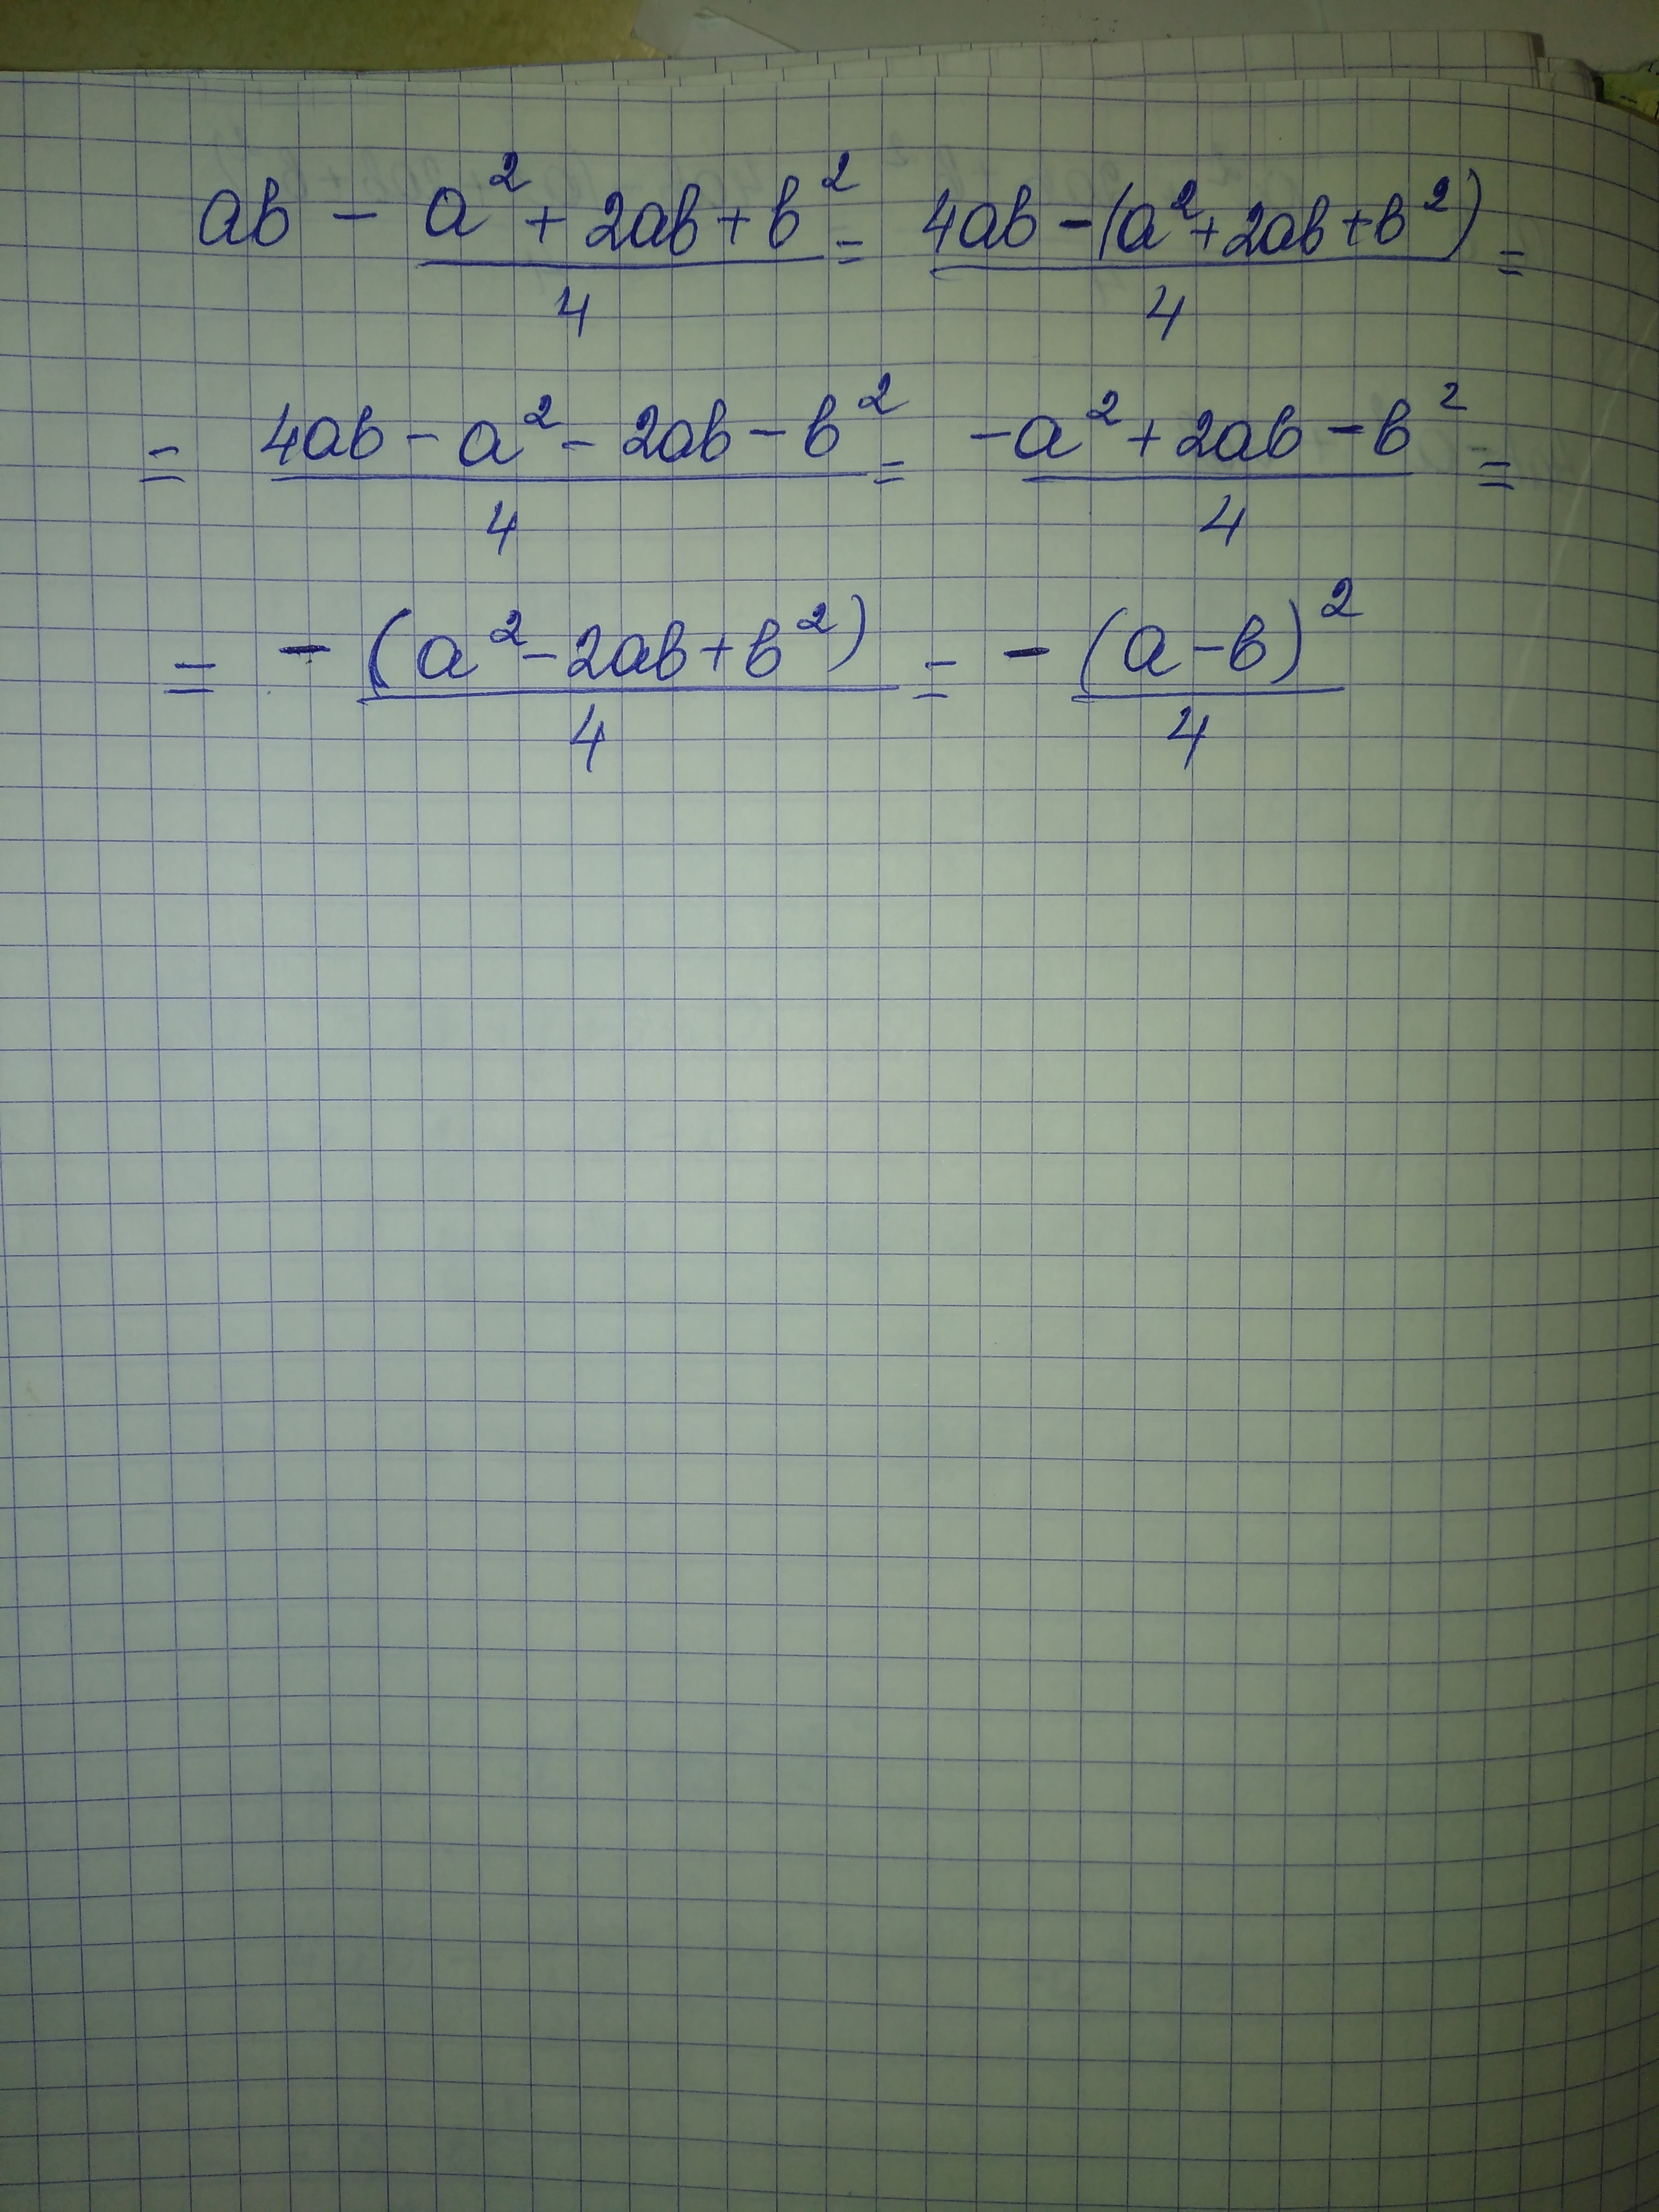 ab - (a² + 2ab + b²)/4 = (4ab - (a² + 2ab + b²))/4 =
= (4ab - a² - 2ab - b²)/4 = (-a² + 2ab - b²)/4 =
= - (a² - 2ab + b²)/4 = - (a - b)²/4